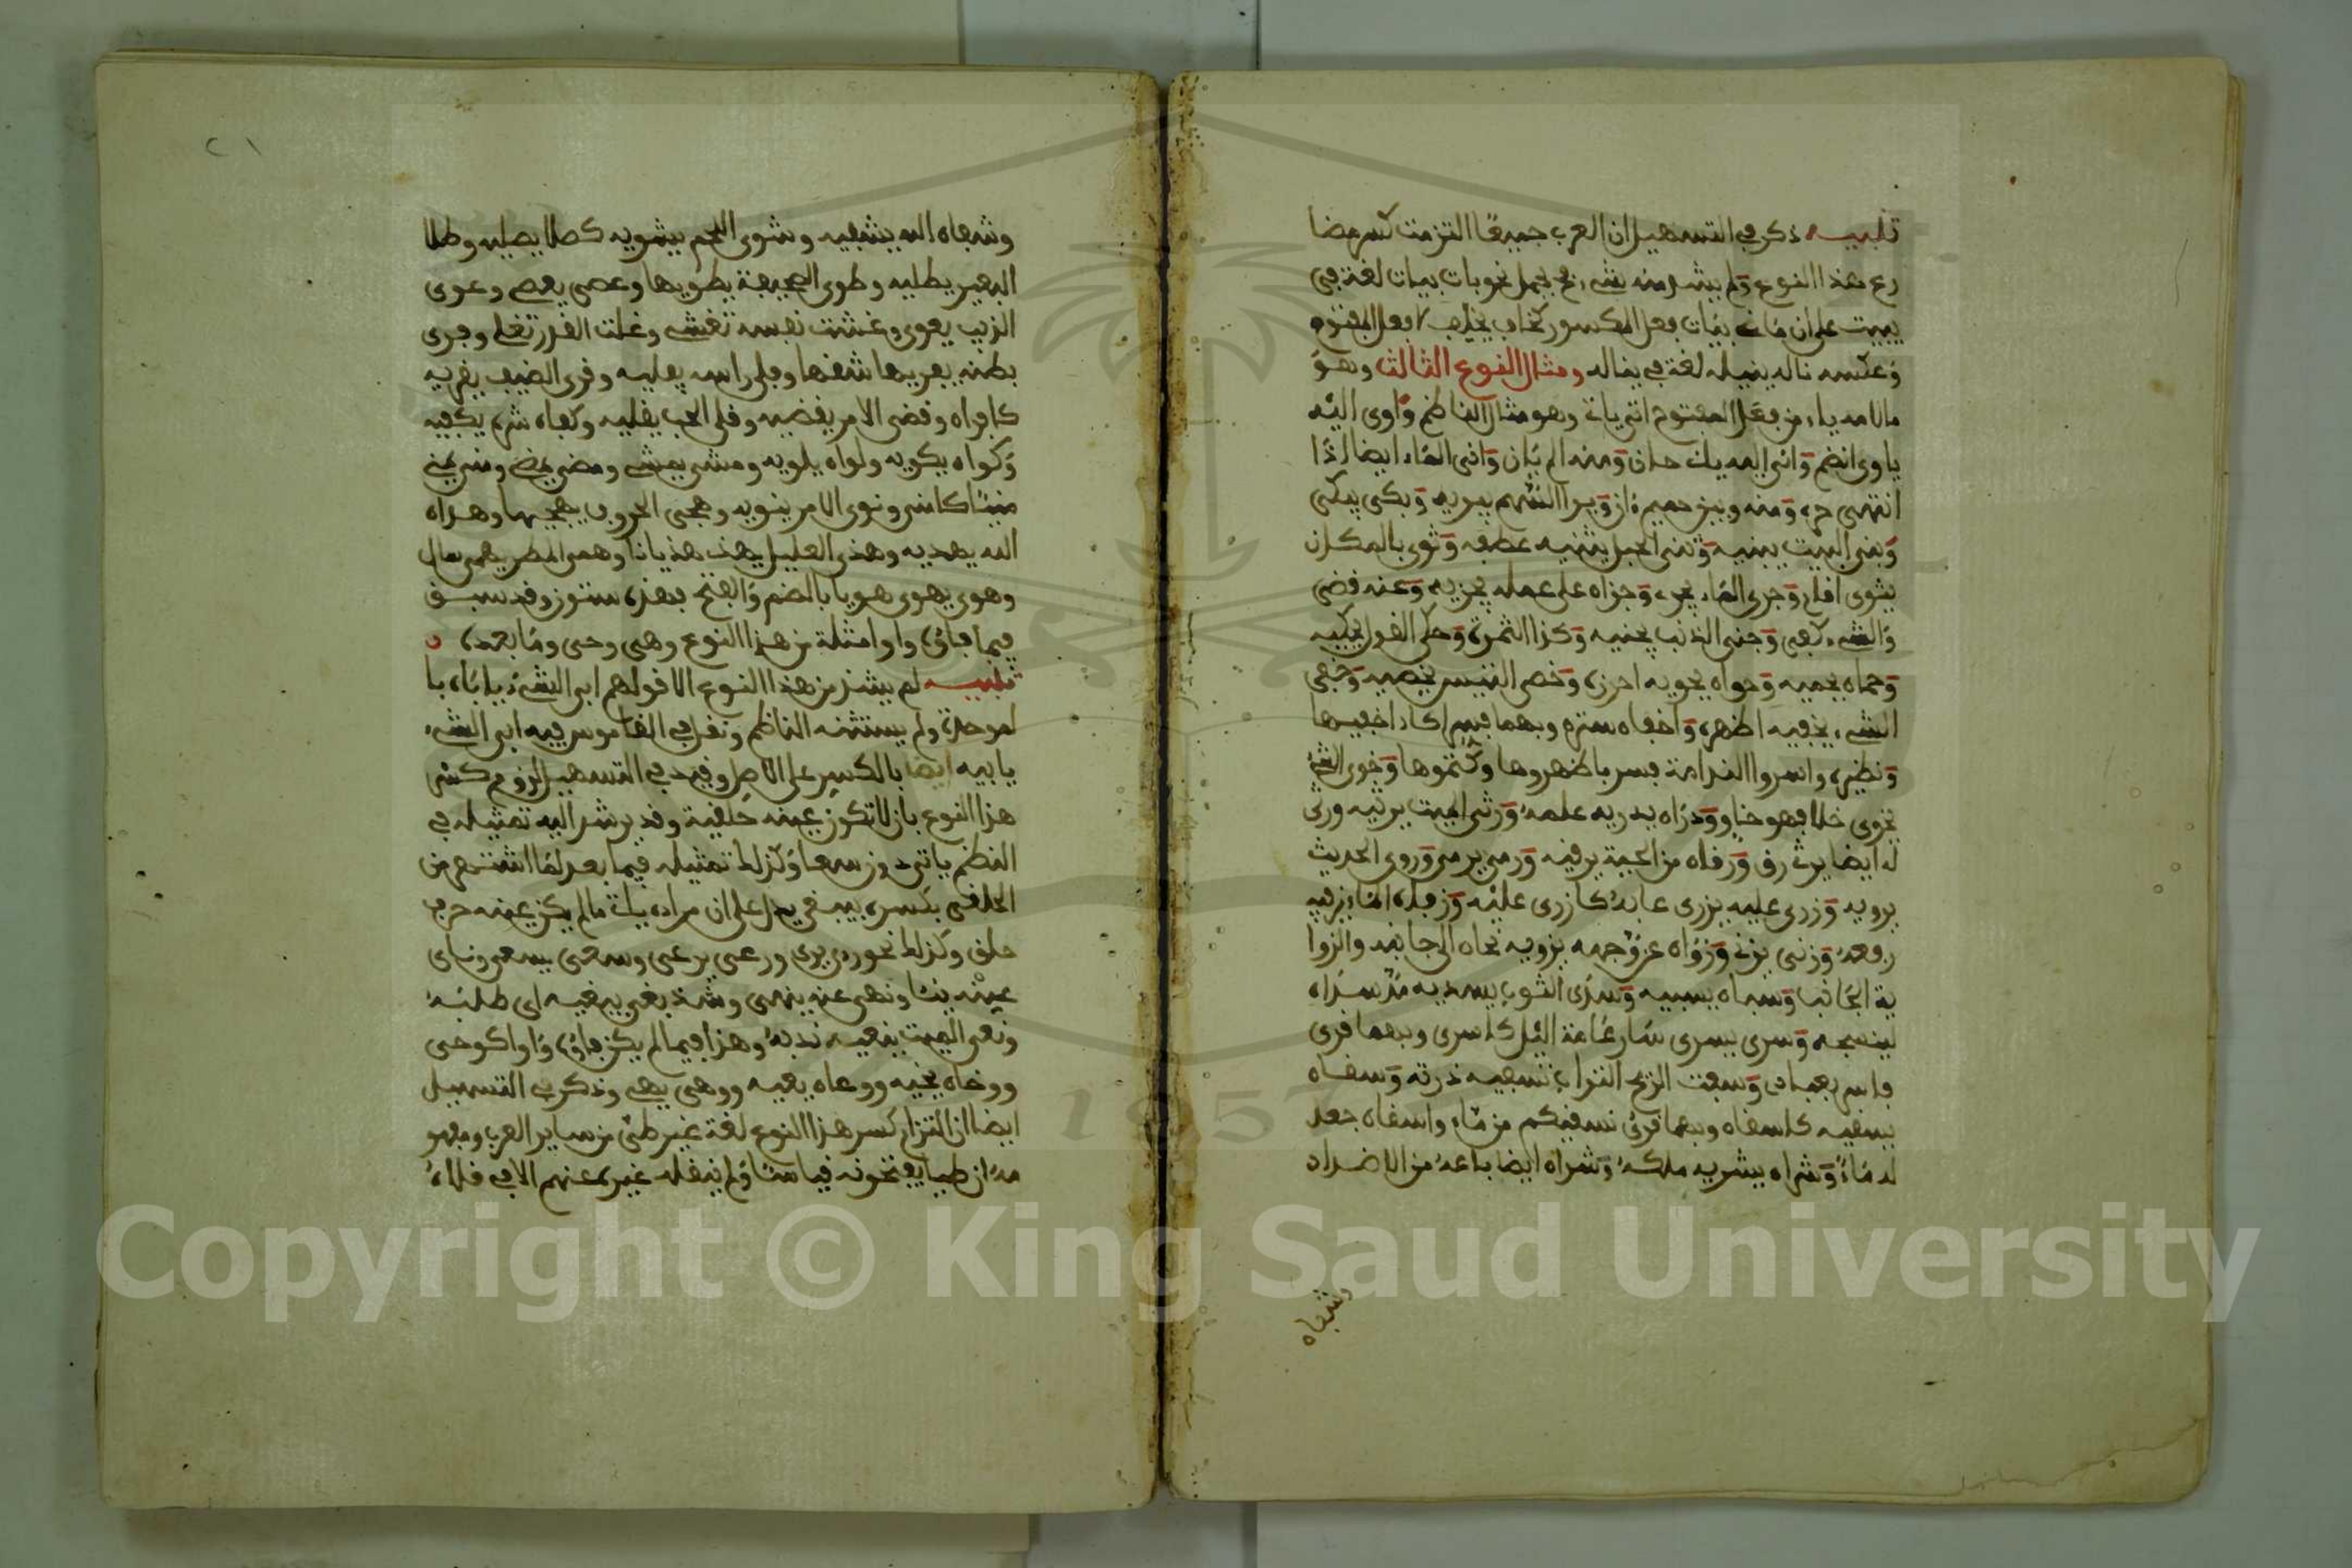 تنبيه ذكر في التسهيل ان العرب جميعًا التزمت كسر مضا
رع هذا النوع ولم يشذ منه شيء فيحمل نحو بات يبات لغة في
يبيت على ان ماضي يبات فعل المكسور كخاف يخاف لا فعل المفتوح
وعكسه ناله ينيله لغة في يناله ومثال النوع الثالث وهو
ما لامه ياء من فعل المفتوح اتى يات وهو مثال الناظم وَاوى اليه
ياوي انضم وَانى اليه يان حان وَمنه الم يان وَانى الماء ايضا اذا
انتهى حره وَمنه وبين حميم ءان وَبرا السهم يبريه وَبكى يبكي
وَبنى البيت يبنيه وَثنى الحبل يثنيه عطفه وَثوى بالمكان
يثوى اقام وَجرى الماء يجري وَجزاه على عمله يجزيه وَعنه قضى
وَالشيء كفى وَجنى الذنب يجنيه وَكذا الثمرة وَحكى القول يحكيه
وَحماه يحميه وَحواه يحويه احرزه وَخصى التيس يخصيه وَخفى
الشيء يخفيه اظهره وَاخفاه ستره وبهما فسر اكاد اخفيها
وَنظيره واسروا الندامة فسر باظهروها وكتموها وَخوى الشيء
يخوى خلا فهو خاو وَدراه يدريه علمه وَرثى الميت يرثيه ورثى
له ايضا يرث رق وَرقاه من الحية يرقيه وَرمى يرمي وَروى الحديث
يرويه وَزرى عليه يزري عابه كازرى عليه وَزفاه الماء يزفيه
رفعه وَزنى يزني وَزواه عن وجهه يزويه نحاه الى جانبه والزوا
ية الجانب وَسباه يسبيه وَسدى الثوب يسديه مد سداه
لينسجه وَسرى يسرى سار عامة اليل كاسرى وبهما قرى
فاسر بعبادي وَسفت الريح التراب تسفيه ذرته وَسقاه
يسقيه كاسقاه وبهما قرئ نسقيكم من ماء واسقاه جعل
له ماءً وَشراه يشريه ملكه وَشراه ايضا باعه من الاضداد
وشفاه
٢١
وشفاه الله يشفيه وشوى اللحم يشويه كصلا يصليه وطلا
البعير يطليه وطوى الصحيفة يطويها وعصى يعصي وعوى
الذيب يعوي وغشت نفسه تغشي وغلت القدر تغلي وفرى
بطنه يفريها شقها وفلى راسه يفليه وقرى الضيف يقريه
كاقراه وقضى الامر يقضيه وقلى الحب يقليه وكفاه شره يكفيه
وكواه يكويه ولواه يلويه ومشى يمشي ومضى يمضي ومنى يمني
منيًا كامنى ونوى الامر ينويه وهجى الحروف يهجيها وهداه
الله يهديه وهذى العليل يهذي هذيانا وهمى المطر يهمي سال
وهوى يهوى هويا بالضم والفتح فهذه ستون وقد سبق
فيما فاؤه واو امثلة من هذا النوع وهي وحى وما بعده
تنبيه لم يشذ من هذا النوع الا قولهم ابى الشيء ياباه با
لموحدة ولم يستثنه الناظم ونقل في القاموس فيه ابى الشيء
يابيه ايضا بالكسر على الاصل وقيد في التسهيل لزوم كسر
هذا النوع بان لا تكون عينه حلقية وقد يرشد اليه تمثيله في
النظم باتى دون سعى وكذلك تمثيله فيما بعد لما اشتهر من
الحلقي بكسر يبغي يدل على ان مراده بات ما لم يكن عينه حرف
حلق وكذلك نحو رءى يرى ورعى يرعى وسعى يسعى وناى
عنه ينئا ونهى عنه ينهى وشذ بغى يبغيه اي طلبه
ونعى الميت ينعيه ندبه وهذا فيما لم يكن فاؤه واوا كوحى
ووخاه يخيه ووعاه يعيه ووهى يهي وذكر في التسهيل
ايضا ان التزام كسر هذا النوع لغة غير طئ من ساير العرب ومفهو
مه ان طيا يفتحونه قياسا ولم ينقله غيره عنهم الا في قلاه